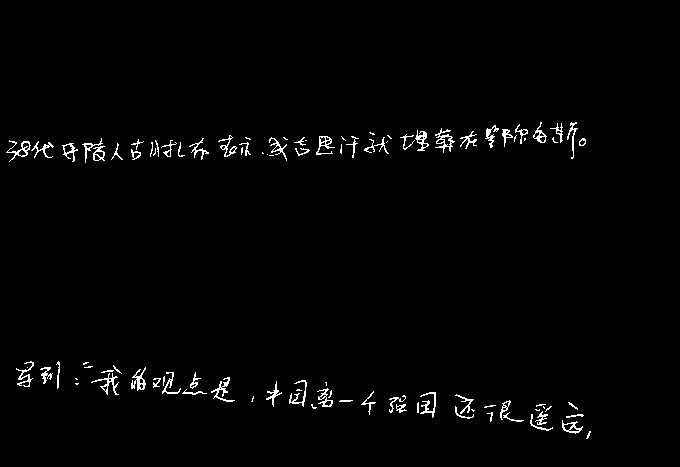 38代守陵人古日扎布表示,成吉思汗就埋葬在鄂尔多斯。
写到:“我的观点是,中国离一个强国还很遥远,